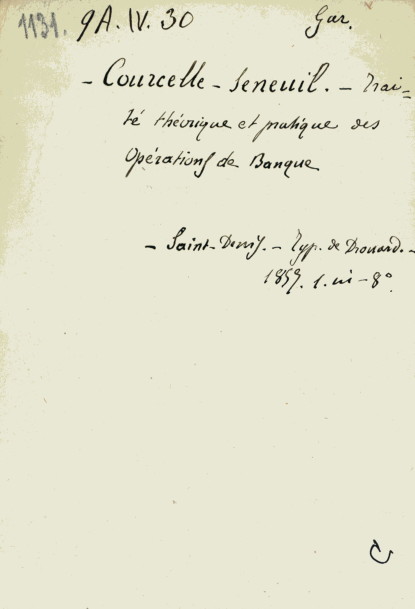 1131. 9A.IV.30 Gar.
- Courcelle - Seneuil. - Trai-
té théorique et pratique des
Opérations de Banque
- Saint-Denis. - Typ. de Drouard. -
1857. 1. in - 8°